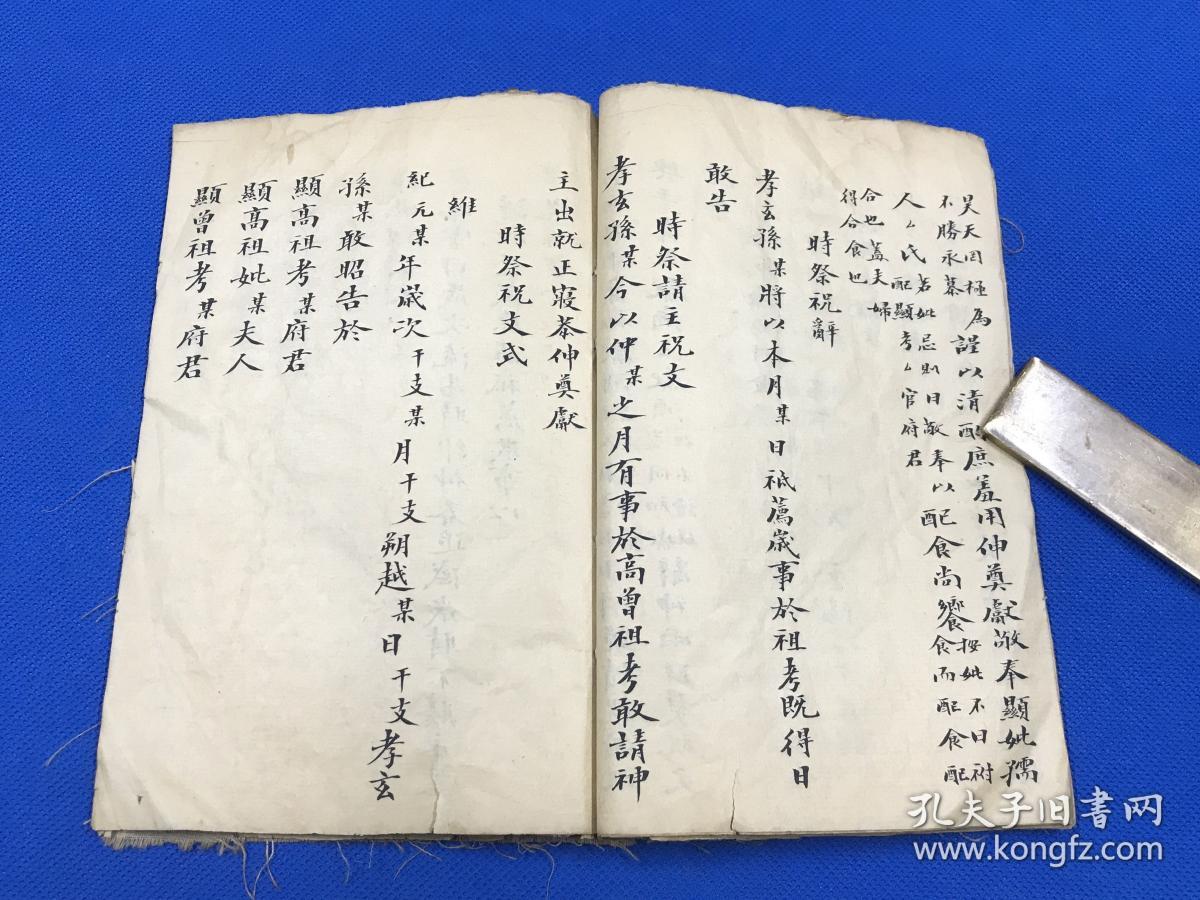 昊天罔極為謹以清酌庶羞用伸奠獻敬奉顯妣孺
不勝永慕
人ム氏若妣忌則曰敬奉以配食尚饗按妣不曰祔
配顯考ム官府君
食而配食配
合也蓋夫婦
得合食也
時祭祝辭
孝玄孫某將以本月某日祗薦歲事於祖考既得日
敢告
時祭請主祝文
孝玄孫某今以仲某之月有事於高曾祖考敢請神
主出就正寢恭伸奠獻
時祭祝文式
維
紀元某年歲次干支某月干支朔越某日干支孝玄
孫某敢昭告於
顯高祖考某府君
顯高祖妣某夫人
顯曾祖考某府君
孔夫子旧書网
www.kongfz.com